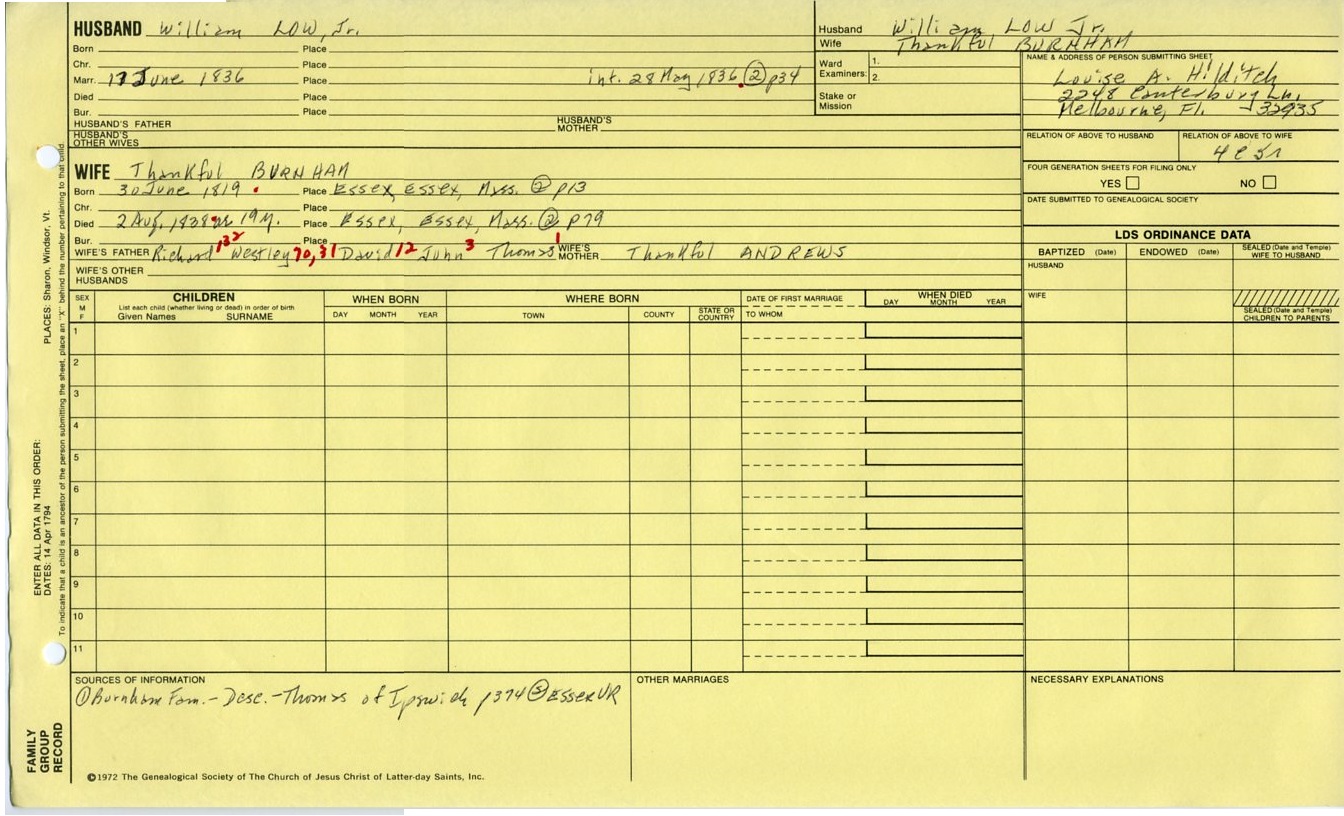 HUSBAND William LOW, Jr.
Born Place
Chr. Place
Marr. 17 June 1836 Place int. 28 May 1836. (2) p34
Died Place
Bur. Place
HUSBAND'S FATHER HUSBAND'S MOTHER
HUSBAND'S OTHER WIVES
Husband William LOW Jr.
Wife Thankful BURNHAM
Ward Examiners: 1.
2.
Stake or Mission
NAME & ADDRESS OF PERSON SUBMITTING SHEET
Louise A. Hilditch
2248 Canterbury Ln.
Melbourne, Fl. 32935
RELATION OF ABOVE TO HUSBAND RELATION OF ABOVE TO WIFE
FOUR GENERATION SHEETS FOR FILING ONLY
YES NO
DATE SUBMITTED TO GENEALOGICAL SOCIETY
WIFE Thankful BURNHAM
Born 30 June 1819 . Place Essex, Essex, Mass. (2) p13
Chr. Place
Died 2 Aug. 1838 19y. Place Essex, Essex, Mass. (2) p79
Bur. Place
WIFE'S FATHER Richard 132 Westley 70,31 David 12 John 3 Thomas 1 WIFE'S MOTHER Thankful ANDREWS
WIFE'S OTHER HUSBANDS
LDS ORDINANCE DATA
BAPTIZED (Date) ENDOWED (Date) SEALED (Date and Temple) WIFE TO HUSBAND
HUSBAND
WIFE
SEALED (Date and Temple) CHILDREN TO PARENTS
SEX M F CHILDREN WHEN BORN WHERE BORN DATE OF FIRST MARRIAGE WHEN DIED
List each child (whether living or dead) in order of birth
Given Names SURNAME DAY MONTH YEAR TOWN COUNTY STATE OR COUNTRY TO WHOM DAY MONTH YEAR
1
2
3
4
5
6
7
8
9
10
11
SOURCES OF INFORMATION
(1) Burnham Fam. - Desc. - Thomas of Ipswich p374 (2) Essex VR
OTHER MARRIAGES
NECESSARY EXPLANATIONS
©1972 The Genealogical Society of The Church of Jesus Christ of Latter-day Saints, Inc.
FAMILY GROUP RECORD
ENTER ALL DATA IN THIS ORDER:
DATES: 14 Apr 1794 PLACES: Sharon, Windsor, Vt.
To indicate that a child is an ancestor of the person submitting the sheet, place an "X" behind the number pertaining to that child.